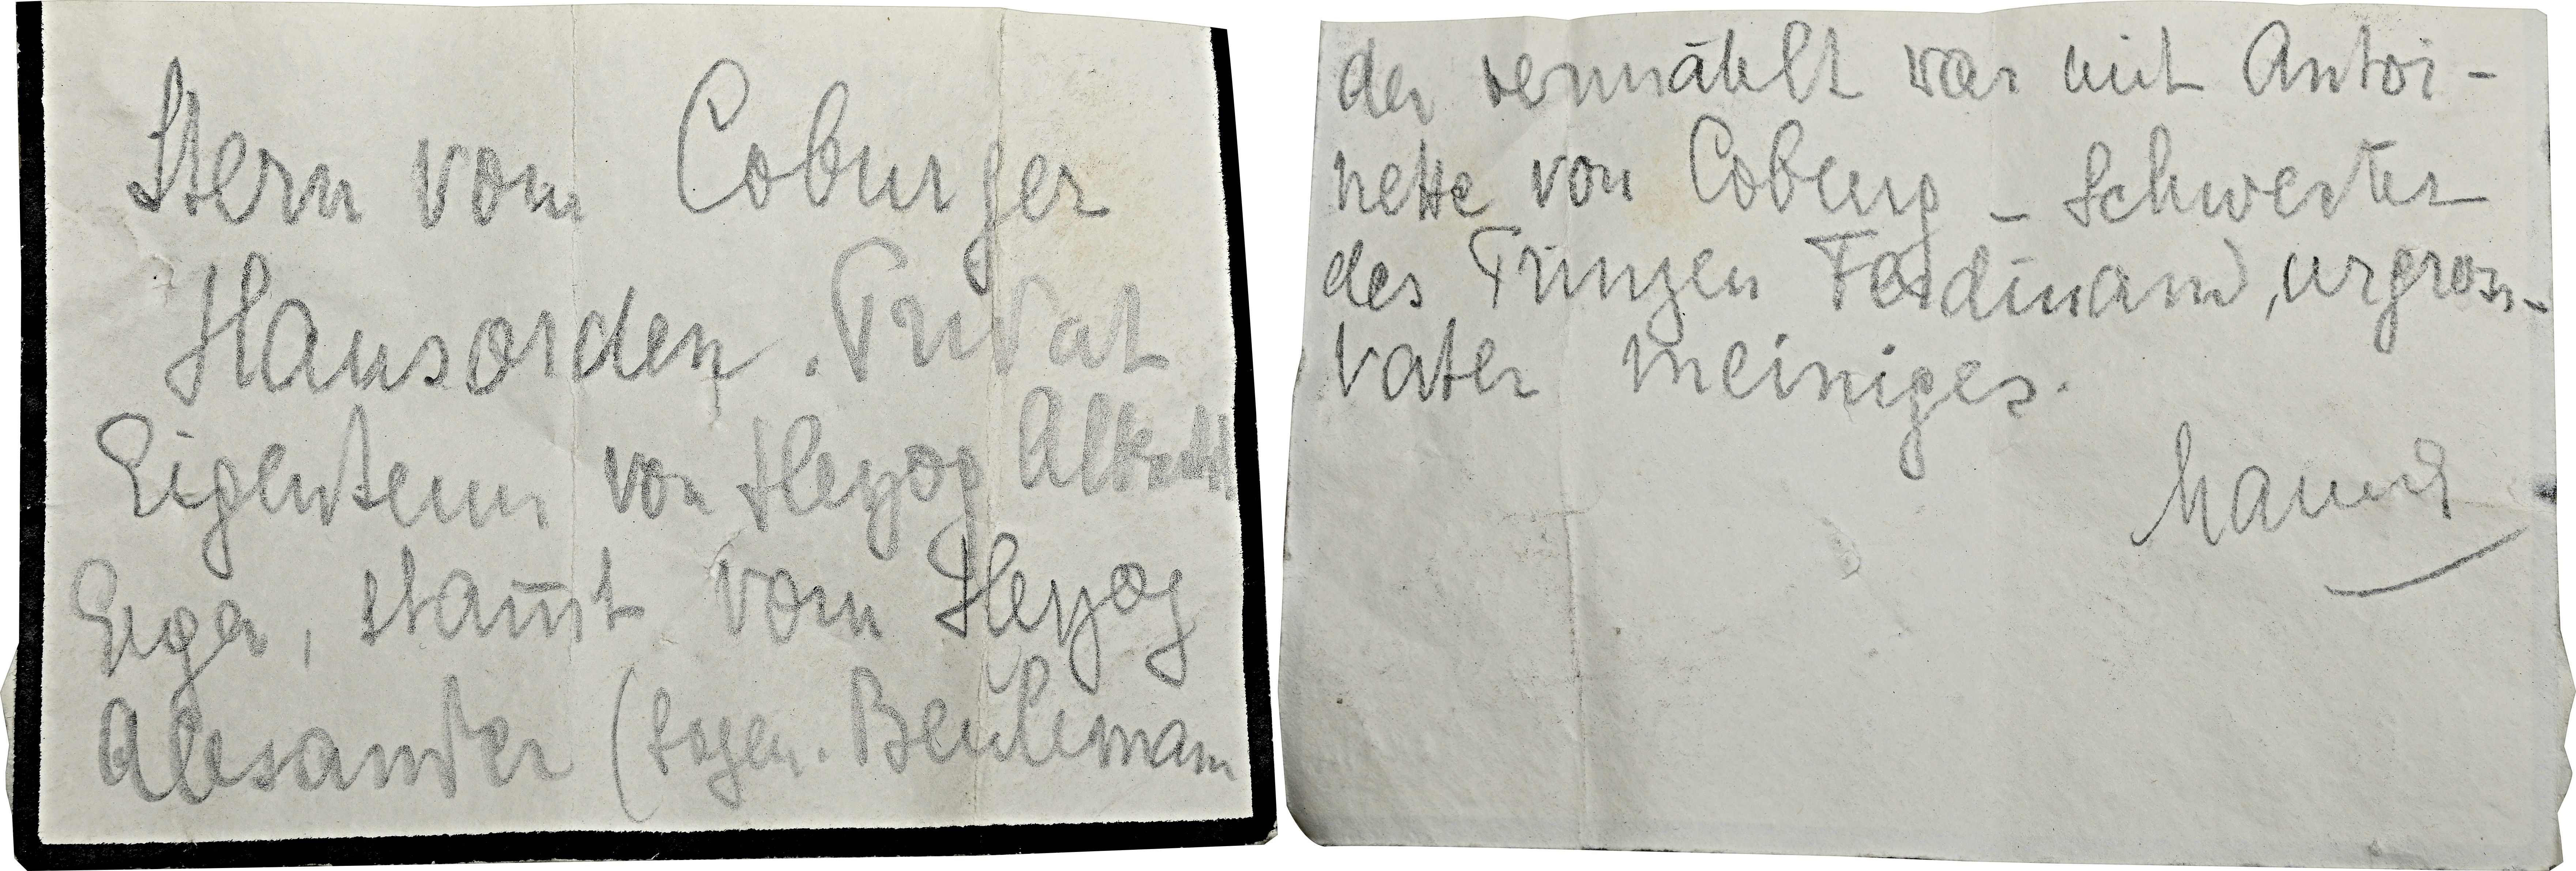 Stern vom Coburger
Hausorden. Privat
Eigentum von Herzog Albrecht
Eugen, stam̄t vom Herzog
Alexander (sogen. Beulemann
der vermählt war mit Antoi-
nette von Coburg – Schwester
des Prinzen Ferdinand, urgross-
vater meiniges.